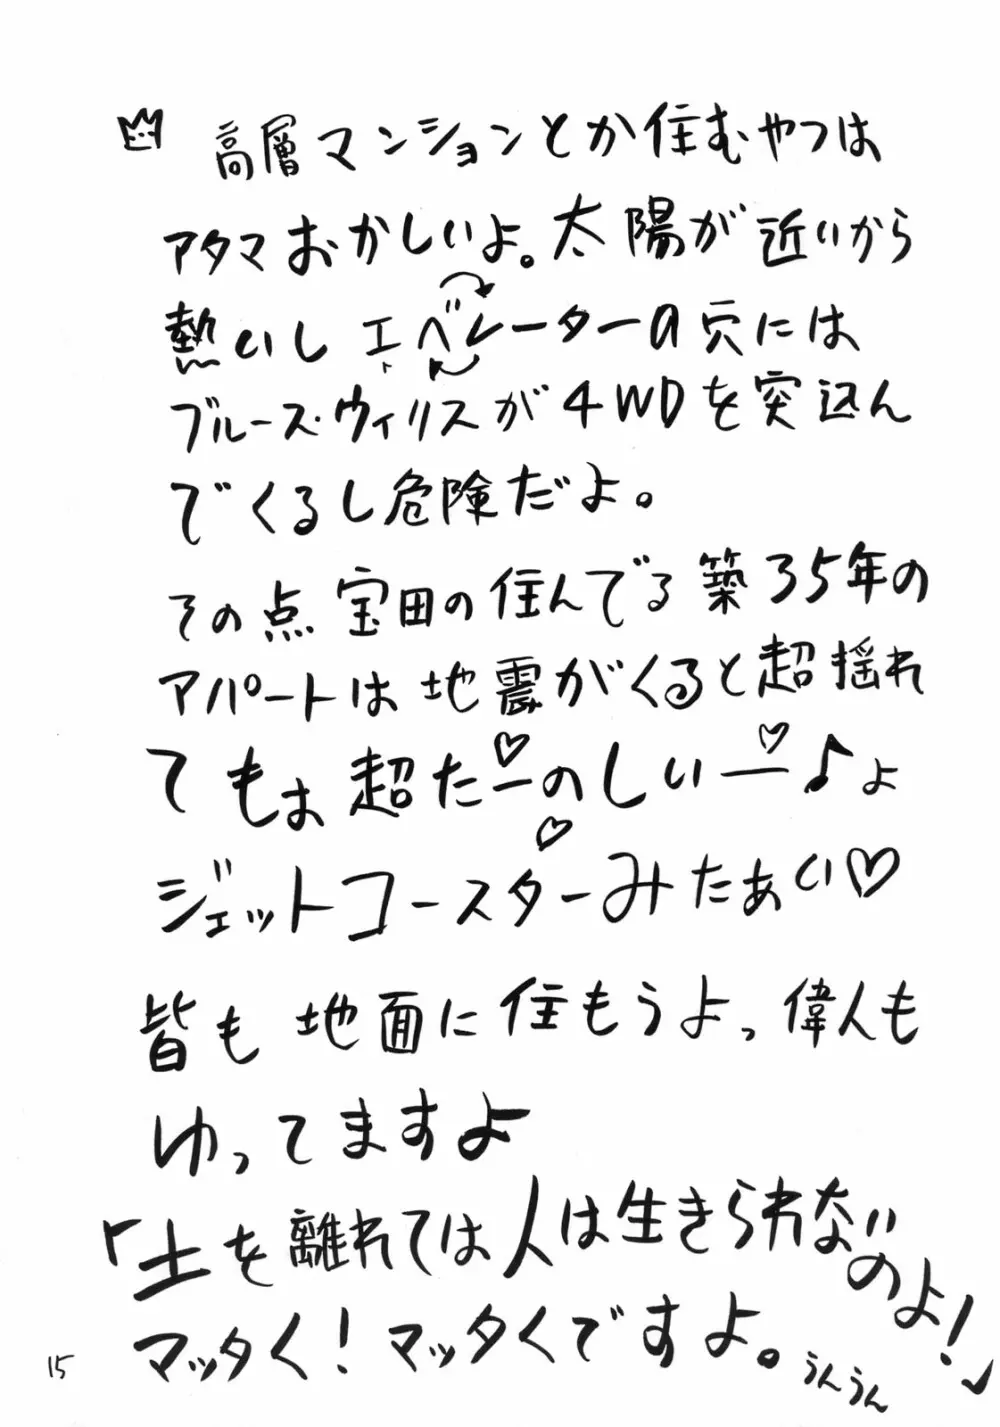 高層マンションとか住むやつは
アタマおかしいよ。太陽が近いから
熱いし エベレーターの穴には
ブルース・ウィリスが4WDを突込ん
でくるし危険だよ。
その点 宝田の住んでる築35年の
アパートは地震がくると超揺れ
てもお超たーのしいー♪よ
ジェットコースターみたぁい♡
皆も地面に住もうよっ偉人も
ゆってますよ
「土を離れては人は生きられないのよ!」
マッタく!マッタくですよ。うんうん
15